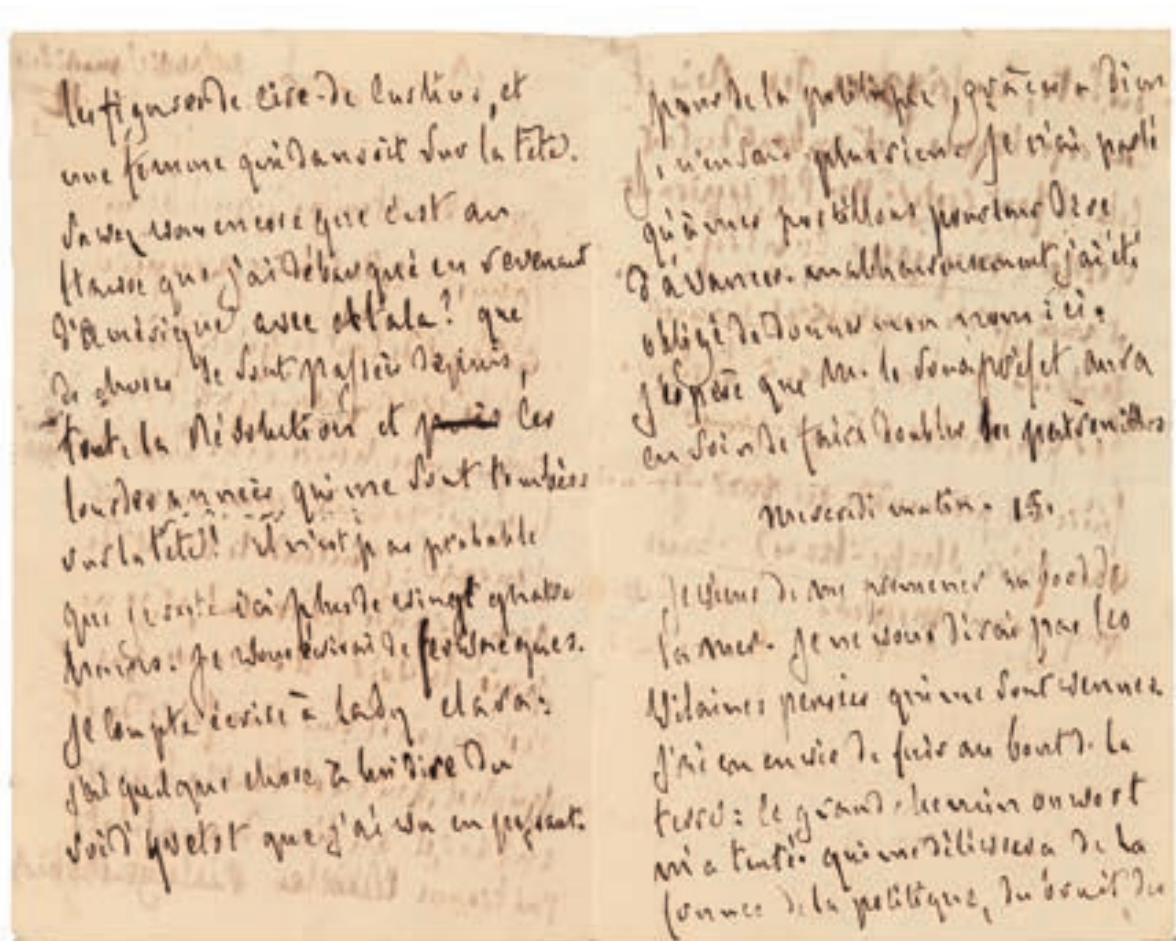 les figures de cire de Curtius, et
une femme qui dansoit sur la tête.
Savez-vous encore que c'est au
Havre que j'ai débarqué en revenant
d'Amérique avec Atala? que
de choses se sont passées depuis,
toute la Révolution et puis les
lourdes années qui me sont tombées
sur la tête! il n'est pas probable
que je reste ici plus de vingt quatre
heures. Je vous écrirai de
je compte écrire à Lady Clara:
j'ai quelque chose à lui dire du
roi d'Yvetot que j'ai vu en passant.
pour de la politique, grâces à Dieu
je n'en sais plus rien. Je n'ai parlé
qu'à mes postillons pour leur dire
d'avancer. malheureusement j'ai été
obligé de donner mon nom ici.
j'espère que M. le sous préfet aura
eu soin de faire doubler les patrouilles
mercredi matin. 15.
Je viens de me promener au bord de
la mer. Je ne vous dirai pas les
vilaines pensées qui me sont venues
j'ai eu envie de fuir au bout de la
terre: le grand chemin ouvert
m'a tenté. qui me délivrera de la
de la politique, du bruit des